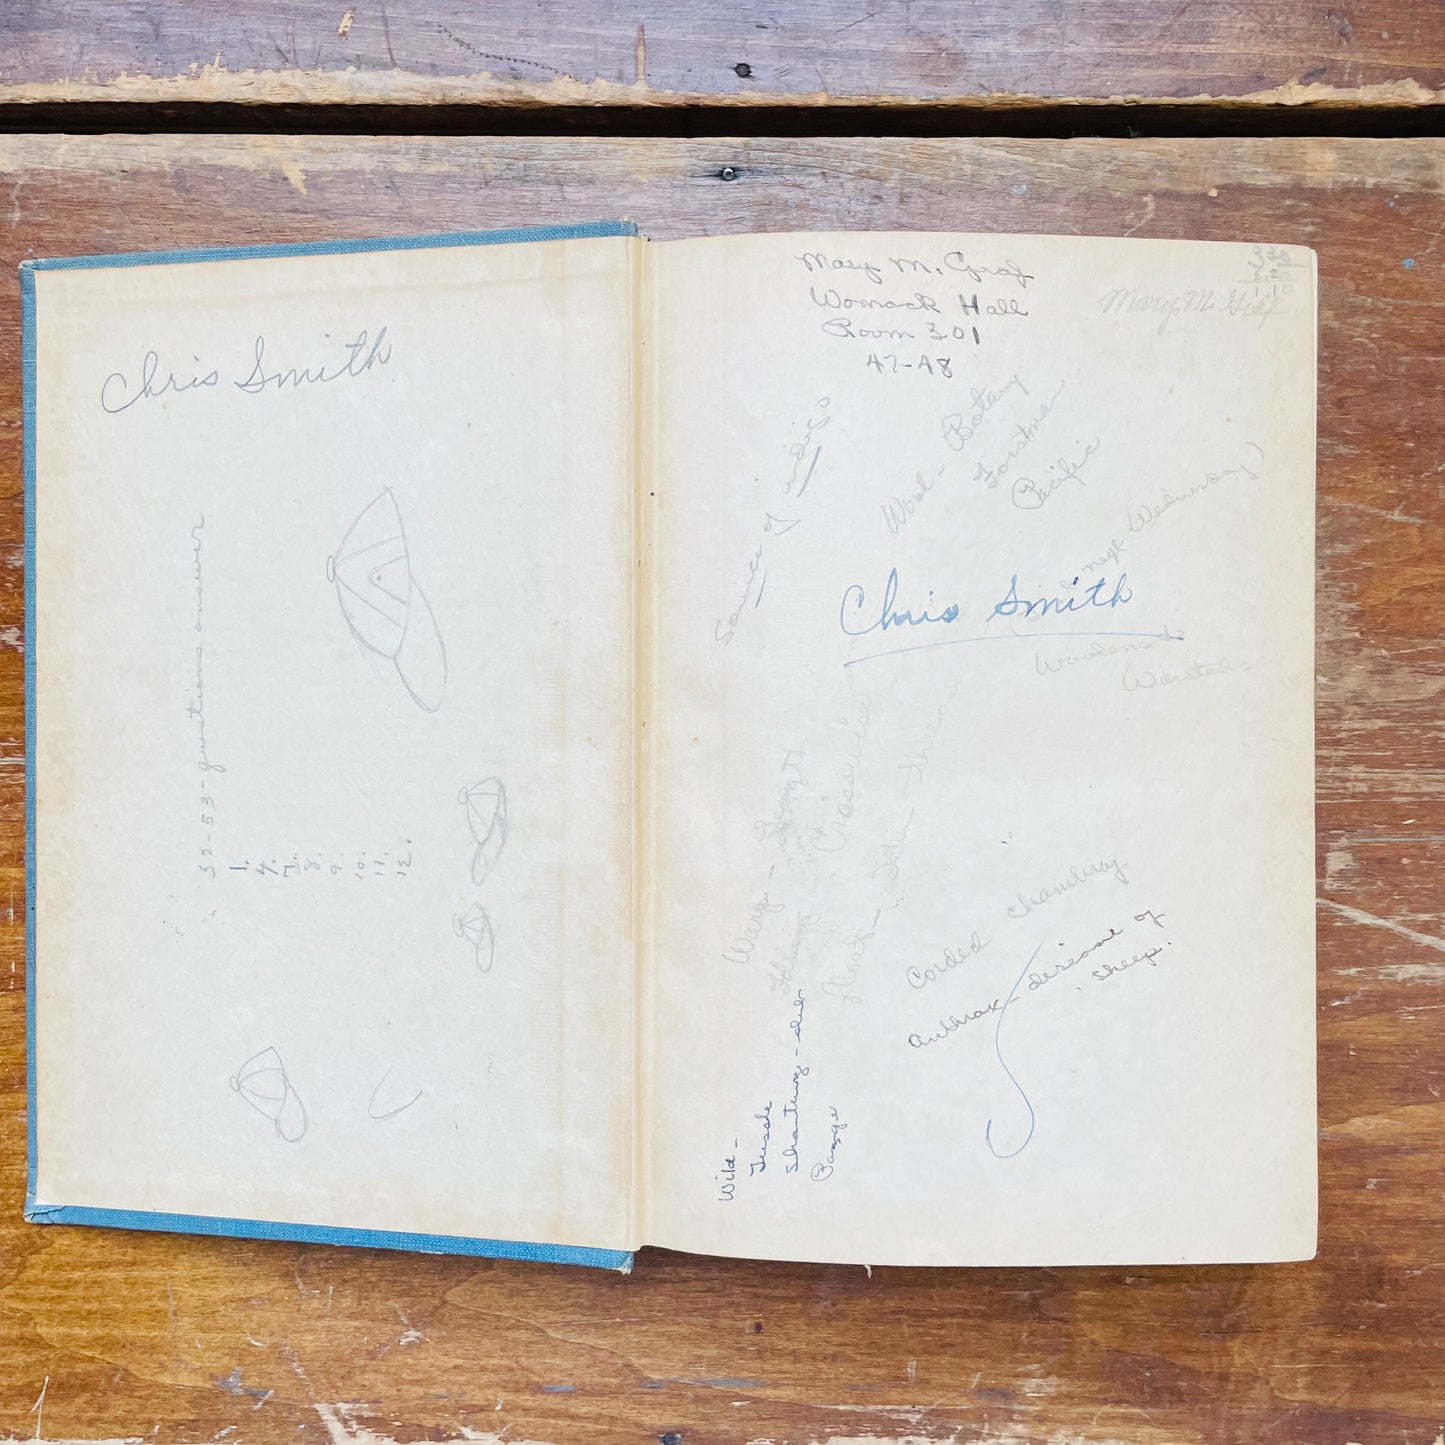 Chris Smith
52-53-questions answer
1.
4.
7.
8.
9.
10.
11.
12.
Mary M. Graf
Womack Hall
Room 301
47-48
Mary M. Graf
Source of indigo
Wool - Botany
Forstman
Pacific
next Wednesday)
Chris Smith
Woolens &
Worsteds
Warp - Length
Filling - Crosswise
float - thread
Corded chambray
anthrax - disease of
sheep.
Wild -
Tussah
Shantung -